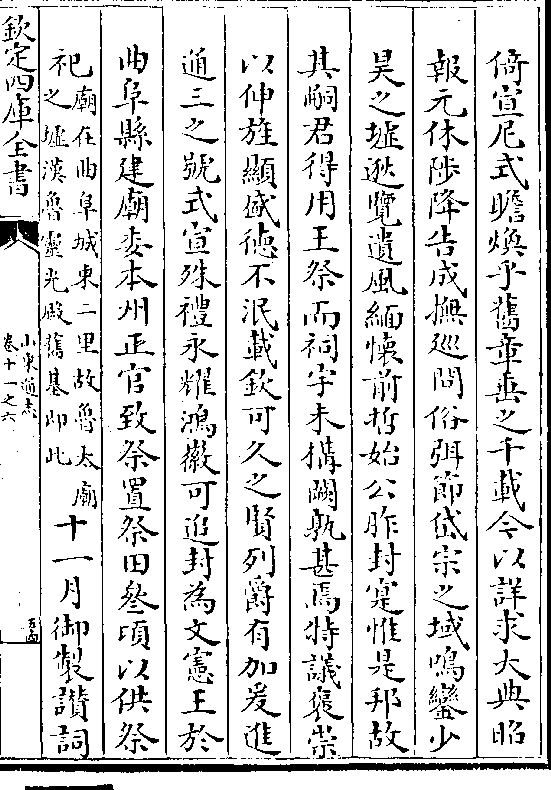 倚宣尼式瞻煥乎舊章垂之千載今以詳求大典昭
報元休陟降告成撫廵問俗弭節岱宗之域鳴鑾少
昊之墟逖覽遺風緬懷前哲始公胙封寔惟是邦故
其嗣君得用王祭而祠宇未搆闕孰甚焉特議褒崇
以伸旌顯盛徳不泯載欽可久之賢列爵有加爰進
通三之號式宣殊禮永耀鴻徽可追封為文憲王於
曲阜縣建廟委本州正官致祭置祭田叁頃以供祭
祀廟在曲阜城東二里故魯太廟之墟漢魯靈光殿舊基即此十一月御製讃詞
欽定四庫全書
山東通志
卷十一之六